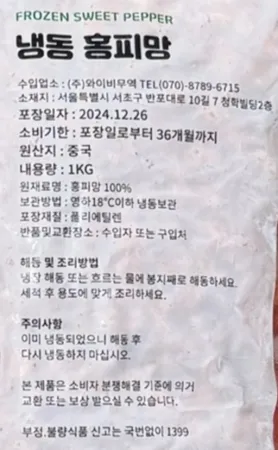 FROZEN SWEET PEPPER
냉동 홍피망
수입업소 : (주)와이비무역 TEL(070)-8789-6715
소재지 : 서울특별시 서초구 반포대로 10길 7 청학빌딩2층
포장일자 : 2024.12.26
소비기한 : 포장일로부터 36개월까지
원산지 : 중국
내용량 : 1KG
원재료명 : 홍피망 100%
보관방법 : 영하18°C이하 냉동보관
포장재질 : 폴리에틸렌
반품및교환장소 : 수입자 또는 구입처
해동 및 조리방법
냉장 해동 또는 흐르는 물에 봉지째로 해동하세요.
세척 후 용도에 맞게 조리하세요.
주의사항
이미 냉동되었으니 해동 후
다시 냉동하지 마십시오.
본 제품은 소비자 분쟁해결 기준에 의거
교환 또는 보상 받으실 수 있습니다.
부정.불량식품 신고는 국번없이 1399